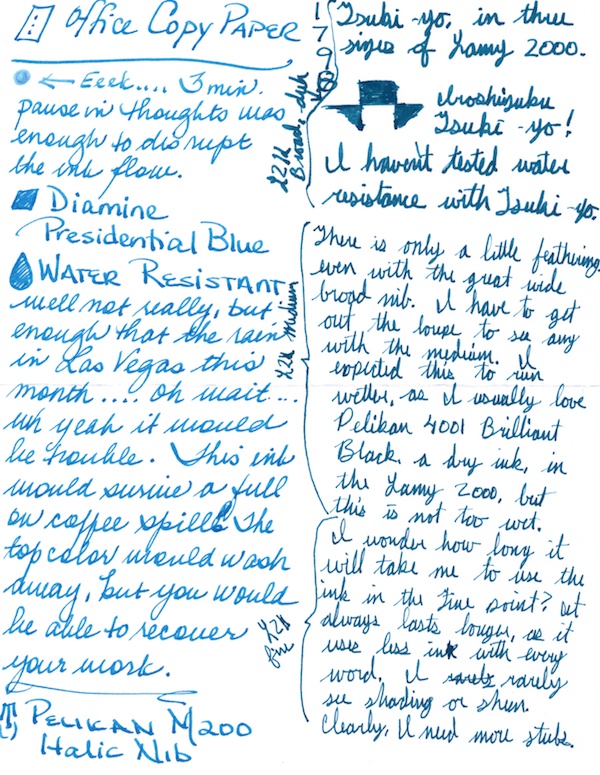 Office Copy Paper
← Eeek.... 3 min.
pause in thoughts was
enough to disrupt
the ink flow.
Diamine
Presidential Blue
Water Resistant
well not really, but
enough that the rain
in Las Vegas this
month.... oh wait...
uh yeah it would
be trouble. This ink
would survive a full
on coffee spill. The
top color would wash
away, but you would
be able to recover
your work.
Pelikan M200
Italic Nib
1
7
9
9
L2K
Broad
Tsuki-yo, in three
sizes of Lamy 2000.
Iroshizuku
Tsuki-yo!
I haven't tested water
resistance with Tsuki-yo.
L2K Medium
There is only a little feathering,
even with the great wide
broad nib. I have to get
out the loupe to see any
with the medium. I
expected this to run
wetter, as I usually love
Pelikan 4001 Brilliant
Black, a dry ink, in
the Lamy 2000, but
this is not too wet.
L2K
I wonder how long it
will take me to use the
ink in the Fine point? It
always lasts longer, as it
uses less ink with every
word. I rarely
see shading or sheen.
Clearly, I need more stubs.